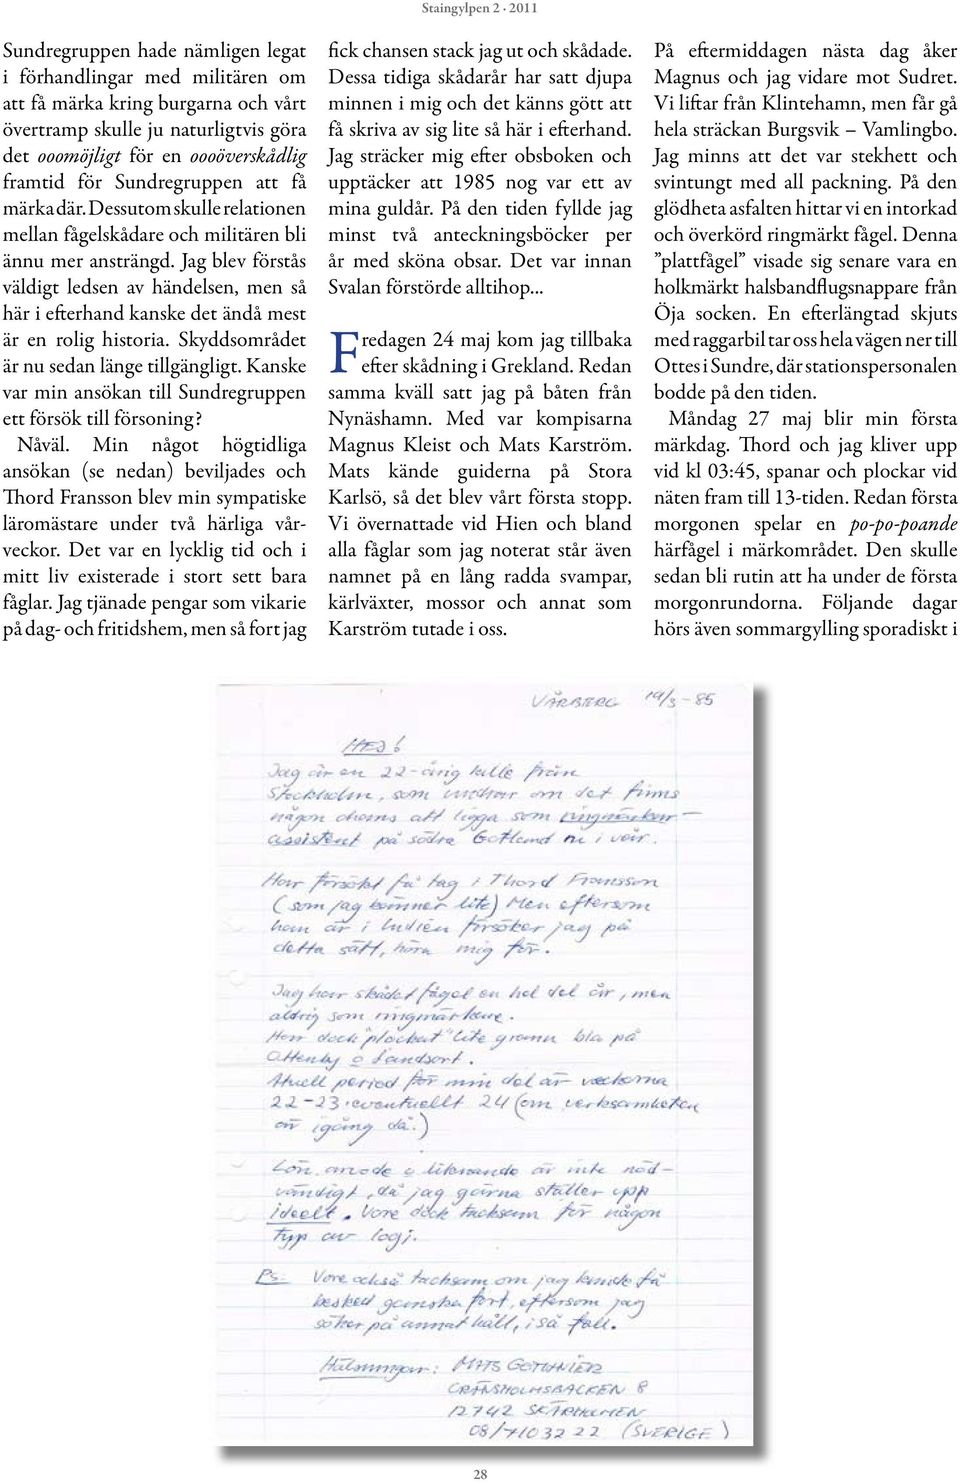 Staingylpen 2 · 2011
Sundregruppen hade nämligen legat
i förhandlingar med militären om
att få märka kring burgarna och vårt
övertramp skulle ju naturligtvis göra
det ooomöjligt för en oooöverskådlig
framtid för Sundregruppen att få
märka där. Dessutom skulle relationen
mellan fågelskådare och militären bli
ännu mer ansträngd. Jag blev förstås
väldigt ledsen av händelsen, men så
här i efterhand kanske det ändå mest
är en rolig historia. Skyddsområdet
är nu sedan länge tillgängligt. Kanske
var min ansökan till Sundregruppen
ett försök till försoning?
Nåväl. Min något högtidliga
ansökan (se nedan) beviljades och
Thord Fransson blev min sympatiske
läromästare under två härliga vår-
veckor. Det var en lycklig tid och i
mitt liv existerade i stort sett bara
fåglar. Jag tjänade pengar som vikarie
på dag- och fritidshem, men så fort jag
fick chansen stack jag ut och skådade.
Dessa tidiga skådarår har satt djupa
minnen i mig och det känns gött att
få skriva av sig lite så här i efterhand.
Jag sträcker mig efter obsboken och
upptäcker att 1985 nog var ett av
mina guldår. På den tiden fyllde jag
minst två anteckningsböcker per
år med sköna obsar. Det var innan
Svalan förstörde alltihop...
Fredagen 24 maj kom jag tillbaka
efter skådning i Grekland. Redan
samma kväll satt jag på båten från
Nynäshamn. Med var kompisarna
Magnus Kleist och Mats Karström.
Mats kände guiderna på Stora
Karlsö, så det blev vårt första stopp.
Vi övernattade vid Hien och bland
alla fåglar som jag noterat står även
namnet på en lång radda svampar,
kärlväxter, mossor och annat som
Karström tutade i oss.
På eftermiddagen nästa dag åker
Magnus och jag vidare mot Sudret.
Vi liftar från Klintehamn, men får gå
hela sträckan Burgsvik – Vamlingbo.
Jag minns att det var stekhett och
svintungt med all packning. På den
glödheta asfalten hittar vi en intorkad
och överkörd ringmärkt fågel. Denna
”plattfågel” visade sig senare vara en
holkmärkt halsbandflugsnappare från
Öja socken. En efterlängtad skjuts
med raggarbil tar oss hela vägen ner till
Ottes i Sundre, där stationspersonalen
bodde på den tiden.
Måndag 27 maj blir min första
märkdag. Thord och jag kliver upp
vid kl 03:45, spanar och plockar vid
näten fram till 13-tiden. Redan första
morgonen spelar en po-po-poande
härfågel i märkområdet. Den skulle
sedan bli rutin att ha under de första
morgonrundorna. Följande dagar
hörs även sommargylling sporadiskt i
VÅRBERG 19/3-85
HEJ!
Jag är en 22-årig kille från
Stockholm, som undrar om det finns
någon chans att ligga som ringmärkar-
assistent på södra Gotland nu i vår.
Har försökt få tag i Thord Fransson
(som jag känner lite) Men eftersom
han är i Indien försöker jag på
detta sätt, höra mig för.
Jag har skådat fågel en hel del år, men
aldrig som ringmärkare.
Har dock "plockat" lite grann bla på
Ottenby o Landsort.
Aktuell period för min del är veckorna
22-23, eventuellt 24 (om verksamheten
är igång då.)
Lön, arvode o liknande är inte nöd-
vändigt, då jag gärna ställer upp
ideellt. Vore dock tacksam för någon
typ av logi.
PS: Vore också tacksam om jag kunde få
besked ganska fort, eftersom jag
söker på annat håll, i så fall.
Hälsningar: MATS GOTHNIER
GRÄNSHOLMSBACKEN 8
12742 SKÄRHOLMEN
08/7103222 (SVERIGE)
28